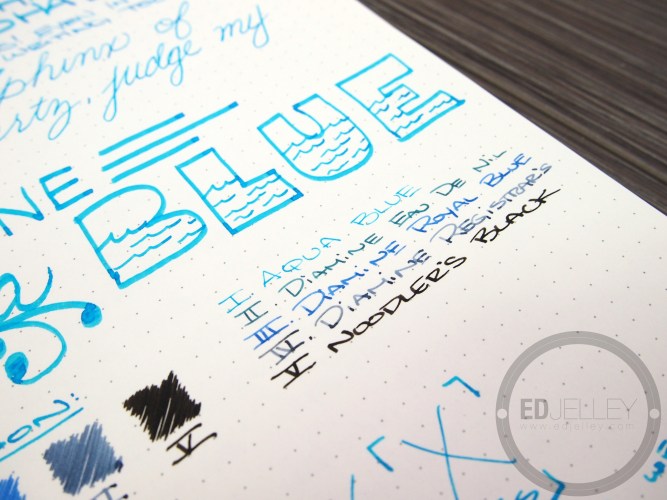 sphinx of
rtz, judge my
NE
BLUE
I AQUA BLUE
II. DIAMINE EAU DE NIL
III DIAMINE ROYAL BLUE
IV. DIAMINE REGISTRAR'S
V NOODLER'S BLACK
ON:
V
I
X
EDJELLEY
www.edjelley.com